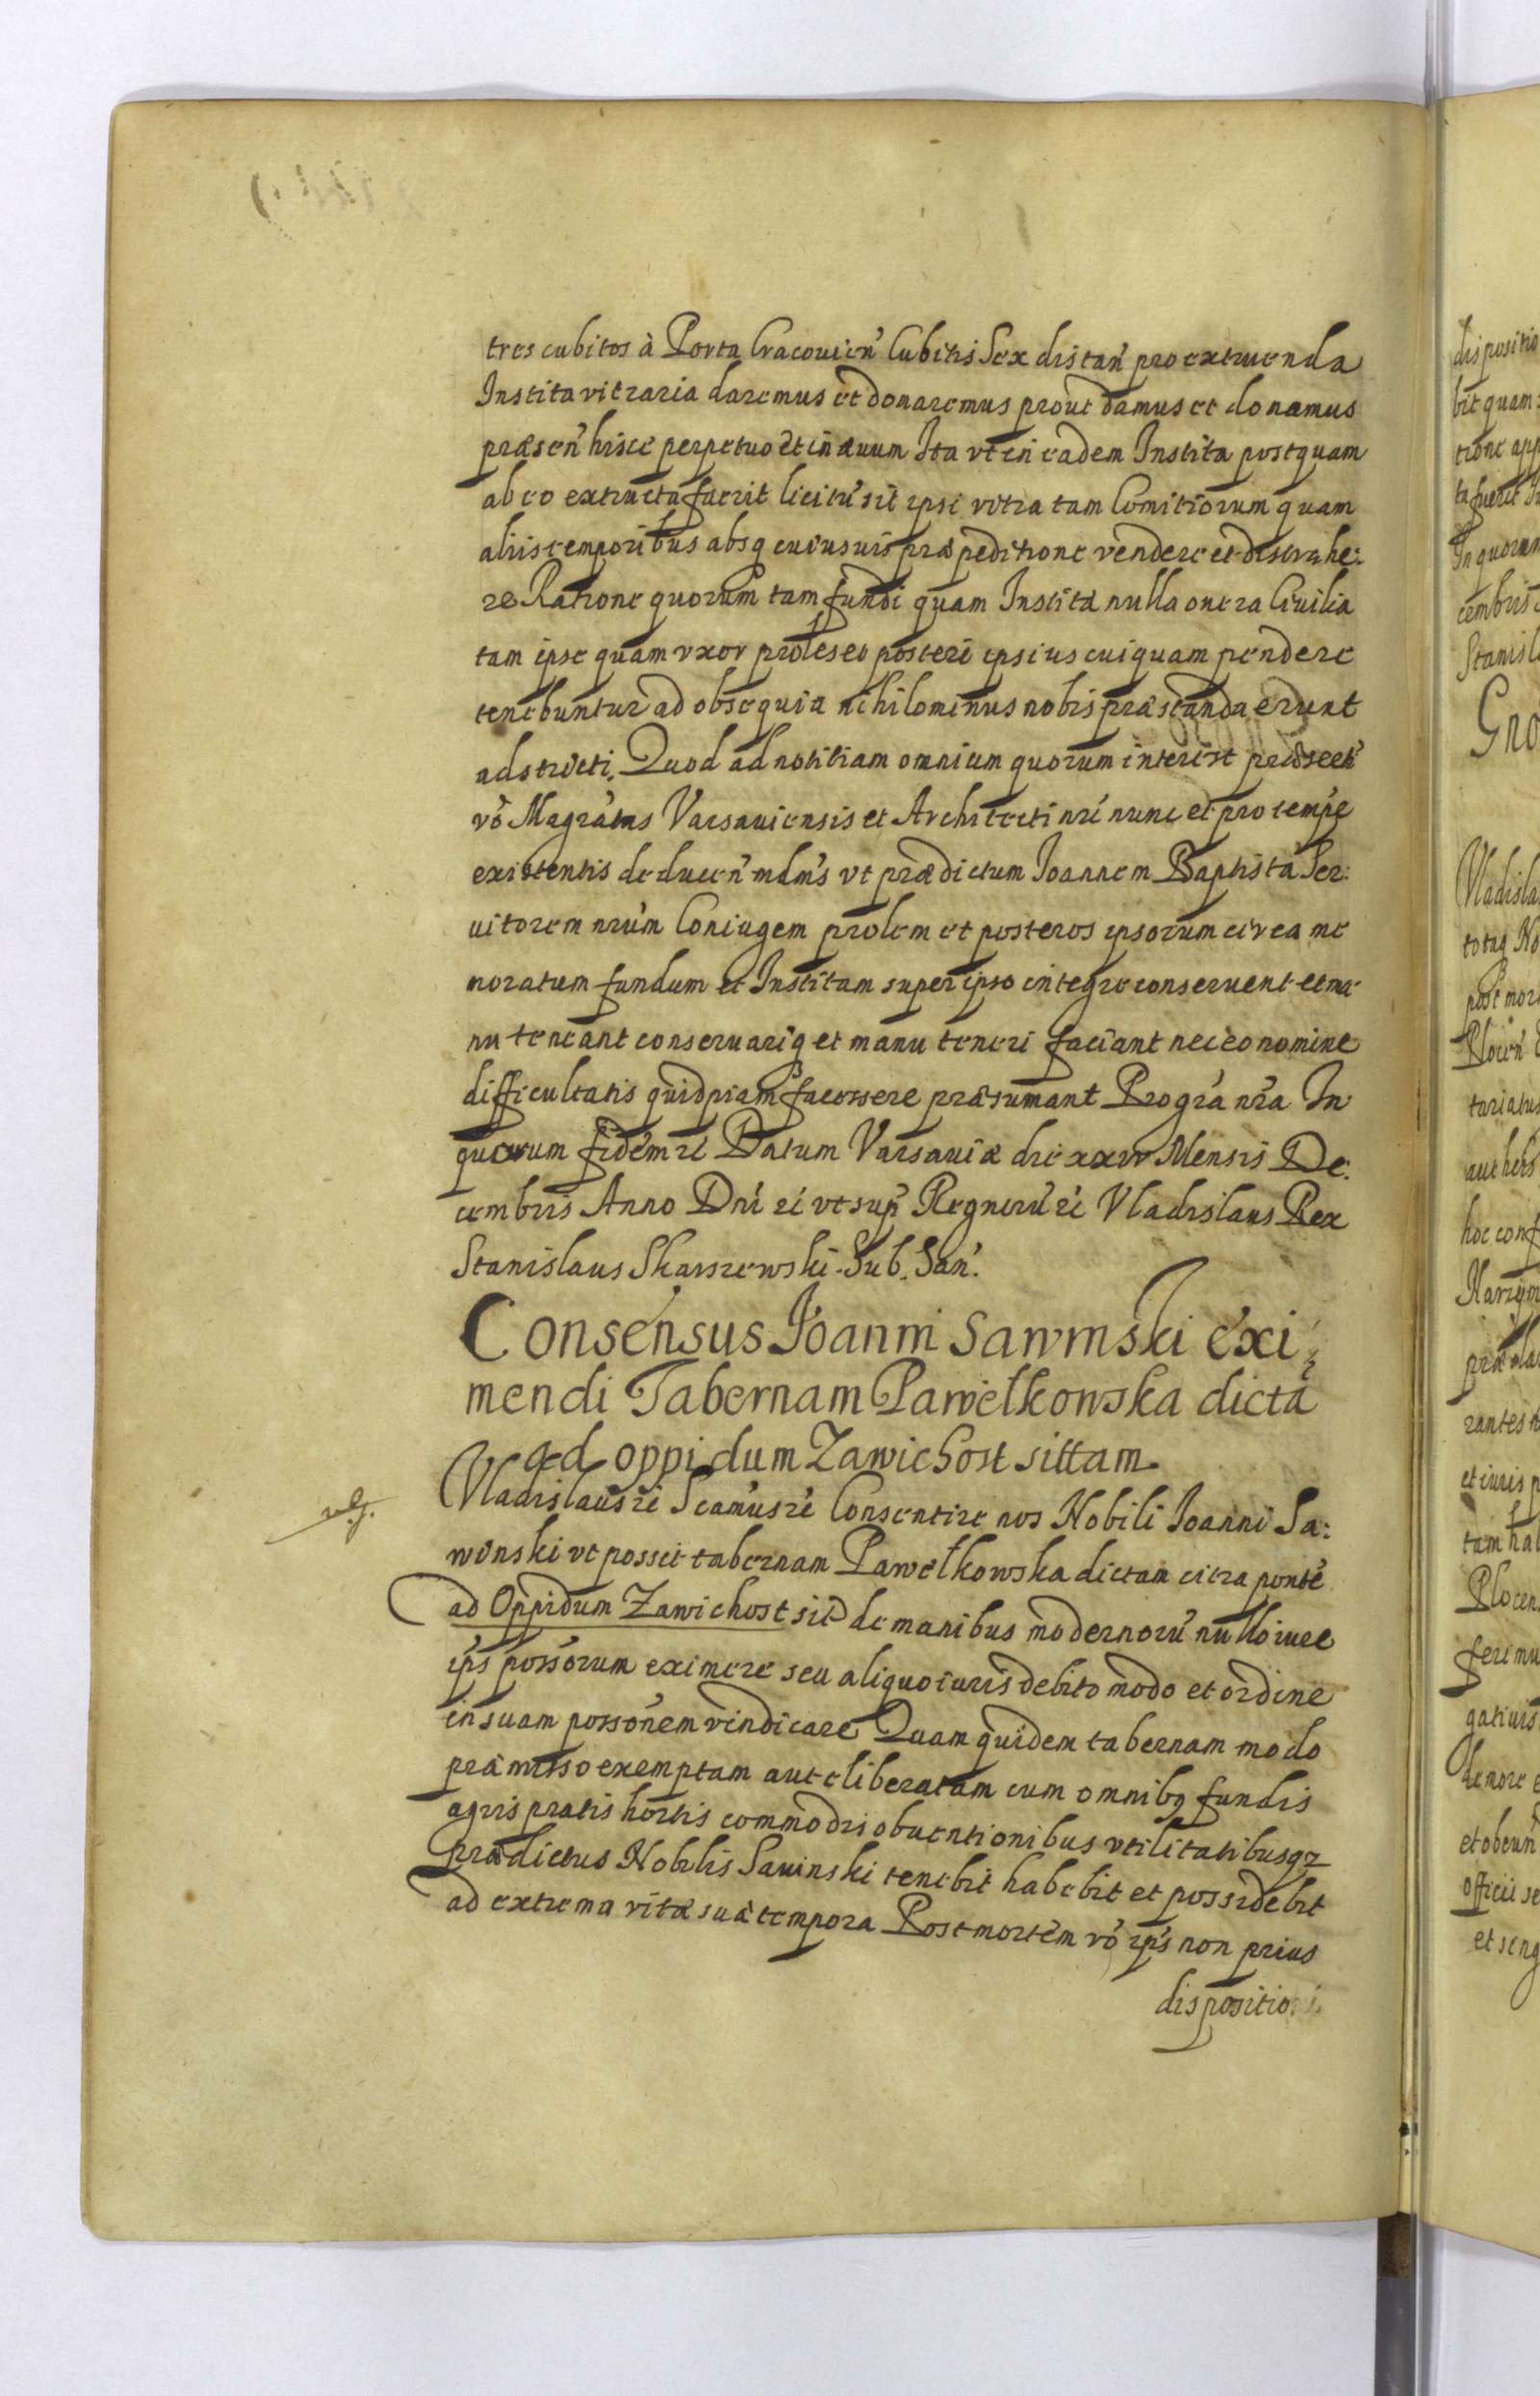 tres cubitos à Porta Cracovien̄ Cubitis Sex distan̄ pro extruenda
Instita vitraria daremus et donaremus prout damus et donamus
præsen̄ hisce perpetuo et in ævum Ita vt in eadem Instita postquam
ab eo extructa fuerit licitū sit ipsi vitra tam Comitiorum quam
aliis temporibus absq cuiusuis præpeditione vendere et distrahe:
re Ratione quorum tam fundi quam Institæ nulla onera Ciuilia
tam ipse quam vxor proles et posteri ipsius cuiquam pendere
tenebuntur ad obsequia nihilominus nobis præstanda erunt
adstricti. Quod ad notitiam omnium quorum interest præsert̄
vō Magrātus Varsauiensis et Architecti nrī nunc et pro tempe
existentis deducen̄ mdms vt prædictum Ioannem Baptistā Ser:
uitorem nrūm Coniugem prolem et posteros ipsorum circa me
moratum fundum et Institam super ipso integre conseruent et ma
nu teneant conseruariq et manu teneri faciant nec eo nomine
difficultatis quidpiam facessere præsumant Pro grā nrā In
quorum fidem rc̄ Datum Varsauiæ die xxiv Mensis De:
cembris Anno Dnī rc̄ vt sup̄ Regnorū rc̄ Vladislaus Rex
Stanislaus Skarszewski. Sub. San̄.
Consensus Joanni Sawinski exi
mendi Tabernam Pawełkowska dictā
ad oppidum Zawichost sittam
Vladislaus rc̄ Scamus rc̄ Consentire nos Nobili Ioanni Sa:
winski vt possit tabernam Pawełkowska dictam citra pontē
ad Oppidum Zawichost sit de manibus modernorū nullo iure
ips possorum eximere seu aliquo iuris debito modo et ordine
in suam possonem vindicare Quam quidem tabernam modo
præmisso exemptam aut eliberatam cum omnibq fundis
agris pratis hortis commodis obuentionibus vtilitatibusqz
prædictus Nobilis Sauinski tenebit habebit et possidebit
ad extrema vitæ suæ tempora Post mortem vō ips non prius
dispositioni